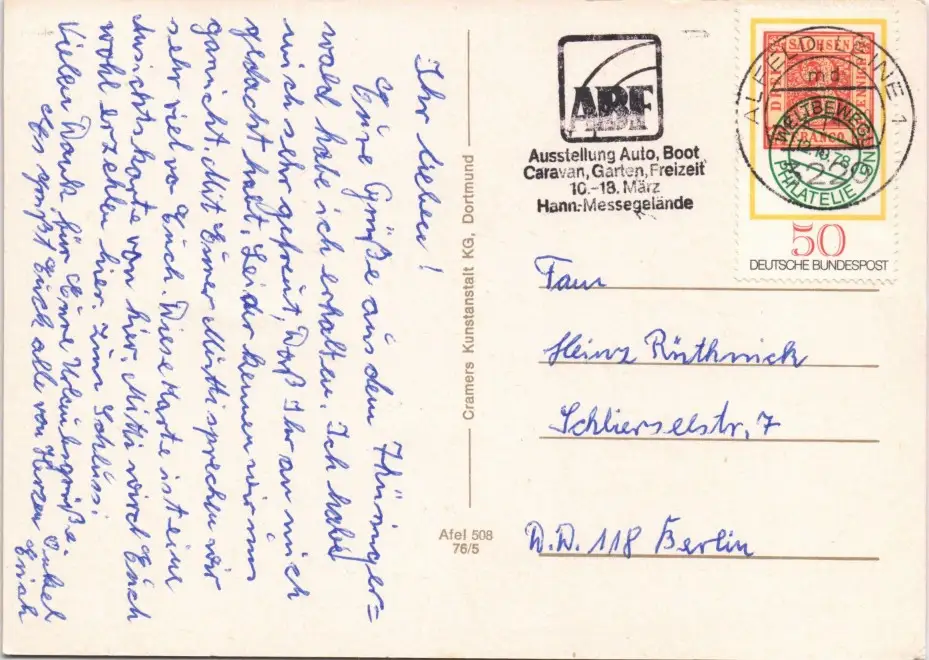 Ihr Lieben!
Eure Grüße aus dem Thüringer=
wald habe ich erhalten. Ich habe
mich sehr gefreut, daß Ihr an mich
gedacht habt. Leider kennen wir uns
garnicht. Mit Eurer Mutti sprechen wir
sehr viel von Euch. Diese Karte ist eine
Ansichtskarte von hier. Mutti wird Euch
wohl erzählen hier. Zum Schluss:
Vielen Dank für Eure Urlaubsgrüße.
Es grüßt Euch alle von Herzen Onkel
Erich
Cramers Kunstanstalt KG, Dortmund
Afel 508
76/5
ABF
Ausstellung Auto, Boot
Caravan, Garten, Freizeit
10.-18. März
Hann.-Messegelände
ALFELD, LEINE 1
md
12.10.78
3220
SACHSEN
DREI PFENNIGE
FRANCO
WELTBEWEGUNG
PHILATELIE
50
DEUTSCHE BUNDESPOST
Fam
Heinz
Schlierseestr. 7
118 Berlin